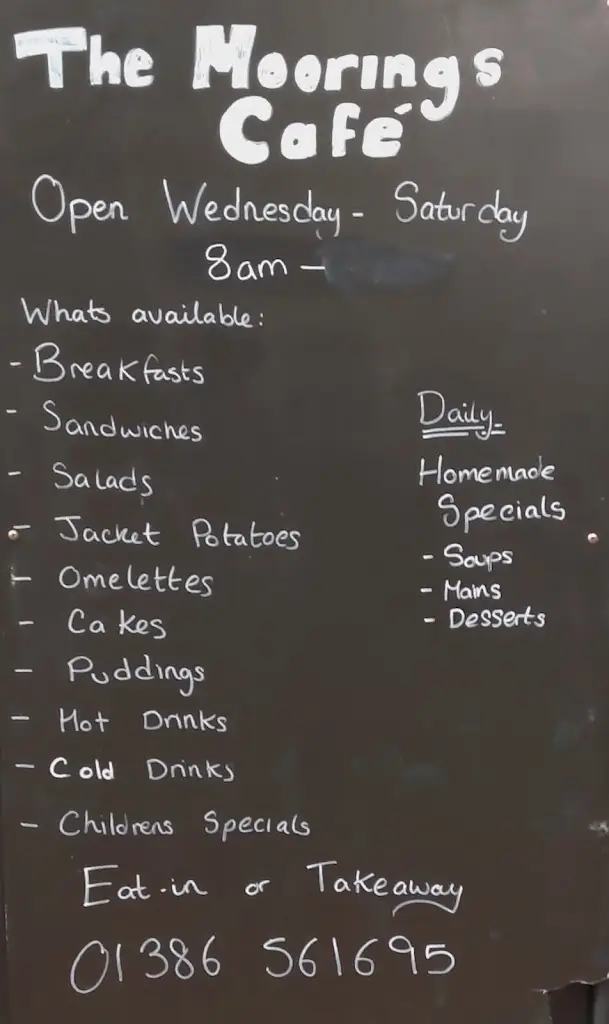 The Moorings
Café
Open Wednesday - Saturday
8am -
Whats available:
- Breakfasts
- Sandwiches
- Salads
- Jacket Potatoes
- Omelettes
- Cakes
- Puddings
- Hot Drinks
- Cold Drinks
- Childrens Specials
Daily
Homemade
Specials
- Soups
- Mains
- Desserts
Eat-in or Takeaway
01386 561695